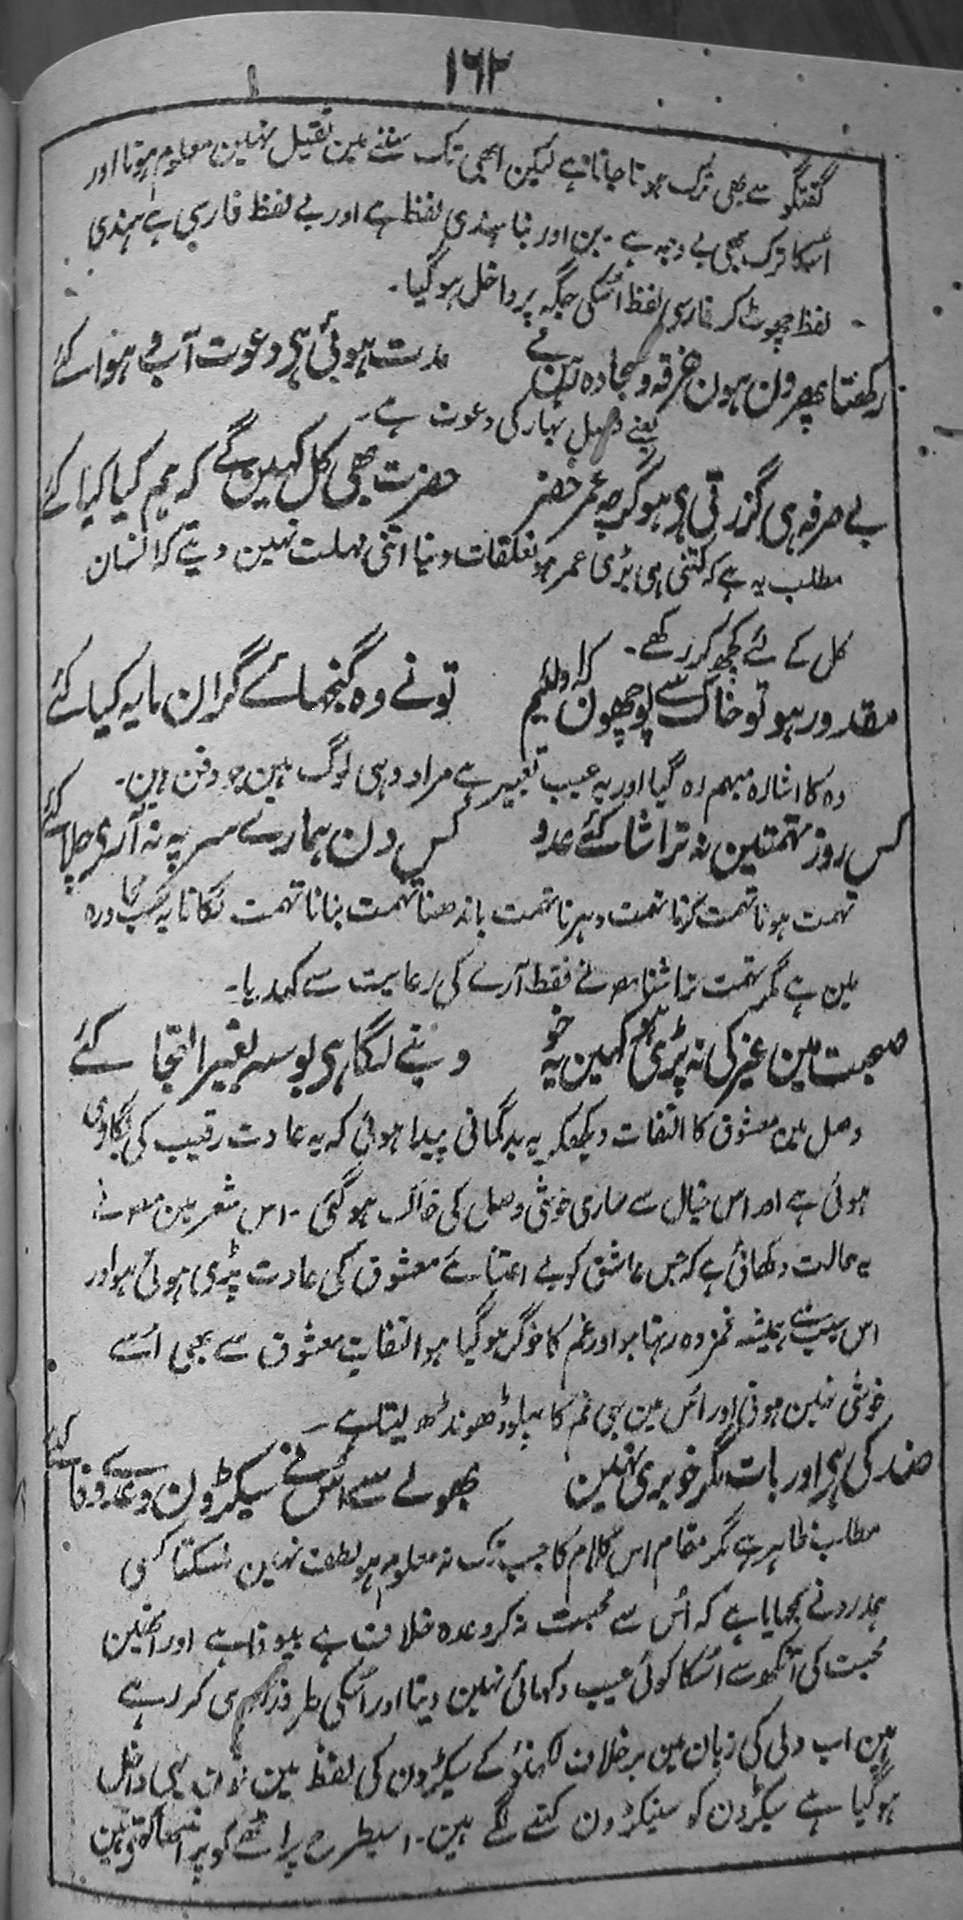 ۱۶۲
گفتگو سے بھی ترک ہوتا جاتا ہے لیکن ابھی تک سننے مین ثقیل نہین معلوم ہوتا اور
اسکا ترک بھی بے وجہ ہے ۔ بن اور بنا ہندی لفظ ہے اور بے لفظ فارسی ہے ہندی
لفظ چھوٹ کر فارسی لفظ اُسکی جگہ پر داخل ہو گیا ۔
رکھتا پھرون ہون خرقہ و سجادہ رہن مے مدت ہوئی ہی دعوت آب و ہوا کئے
یعنے فصل بہار کی دعوت ہے ۔
بے صرفہ ہی گزرتی ہی ہو گرچہ عمر خضر حضرت بھی کل کہین گے کہ ہم کیا کیا کئے
مطلب یہ ہے کہ کتنی ہی بڑی عمر ہو تعلقات دنیا اتنی مہلت نہین دیتے کہ انسان
کل کے لئے کچھ کر رکھے ۔
مقدور ہو تو خاک سے پوچھون کہ او لئیم تو نے وہ گنجہائے گران مایہ کیا کئے
وہ کا اشارہ مبہم رہ گیا اور یہ عیب تعبیر ہے مراد وہی لوگ ہین جو دفن ہین ۔
کس روز تہمتین نہ تراشا کئے عدو کس دن ہمارے سر پہ نہ آرے چلا کئے
تہمت ہونا تہمت کرنا تہمت دھرنا تہمت باندھنا تہمت بنانا تہمت لگانا یہ سب محاورہ
مین ہے مگر تہمت تراشنا مص نے فقط آرے کی رعایت سے کہدیا ۔
صحبت مین غیر کی نہ پڑی ہو کہین یہ خو دینے لگا ہی بوسہ بغیر التجا کئے
وصل مین معشوق کا التفات دیکھکر یہ بدگمانی پیدا ہوئی کہ یہ عادت رقیب کی بگاڑی
ہوئی ہے اور اس خیال سے ساری خوشی وصل کی خاک ہو گئی ۔ اس شعر مین مص نے
یہ حالت دکھائی ہے کہ جس عاشق کو بے اعتنائے معشوق کی عادت پڑی ہوئی ہو اور
اس سبب سے ہمیشہ غمزدہ رہتا ہو اور غم کا خوگر ہو گیا ہو التفات معشوق سے بھی اُسے
خوشی نہین ہوتی اور اُس مین بھی غم کا پہلو ڈھونڈھ لیتا ہے ۔
ضد کی ہی اور بات مگر خو بری نہین بھولے سے اُس نے سیکڑون وعدے وفا کئے
مطلب ظاہر ہے مگر مقام اس کلام کا جب تک نہ معلوم ہو لطف نہین ۔ کسی
ہمدرد نے سمجھایا ہے کہ اُس سے محبت نہ کر وعدہ خلاف ہے بیوفا ہے اور اُنھین
محبت کی آنکھ سے اُسکا کوئی عیب دکھائی نہین دیتا اور اُسکی طرفداری کر رہے
ہین اب دلی کی زبان مین برخلاف لکھنؤ کے سیکڑون کی لفظ مین نون بھی داخل
ہو گیا ہے سیکڑون کو سینکڑون کہنے لگے ہین ۔ اسیطرح پراٹھے کو